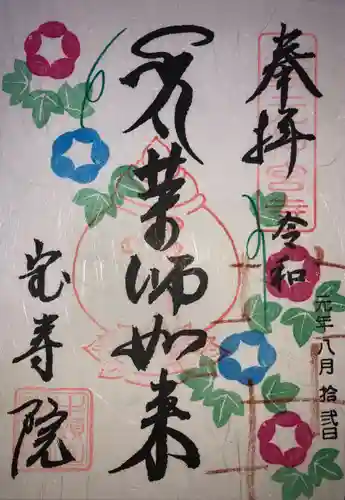 奉拝
令和
元年八月拾弐日
薬師如来
宝寿院